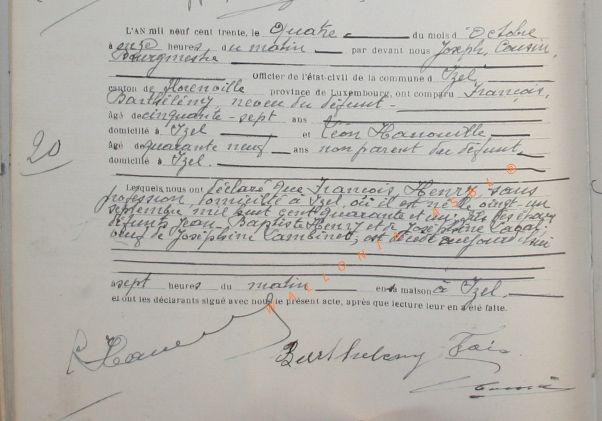 L'AN mil neuf cent trente, le Quatre du mois d'Octobre
à onze heures du matin par devant nous Joseph, Cousin,
Bourgmestre
Officier de l'état-civil de la commune d'Izel,
canton de Florenville province de Luxembourg, ont comparu François,
Barthélémy, neveu du défunt
âgé de cinquante-sept ans
domicilié à Izel et Léon Hanouille,
âgé de quarante neuf ans non parent du défunt
domicilié à Izel.
20
Lesquels nous ont déclaré que François, Henry, sans
profession, domicilié à Izel, où il est né le vingt-un
septembre mil huit cent quarante et un, fils des époux
défunts Jean-Baptiste Henry et de Joséphine
veuf de Joséphine Lambinet, est décédé aujourd'hui
à sept heures du matin en sa maison à Izel.
et ont les déclarants signé avec nous le présent acte, après que lecture leur en a été faite.
WALLONIA ASBL ®
Barthelemy Fois.